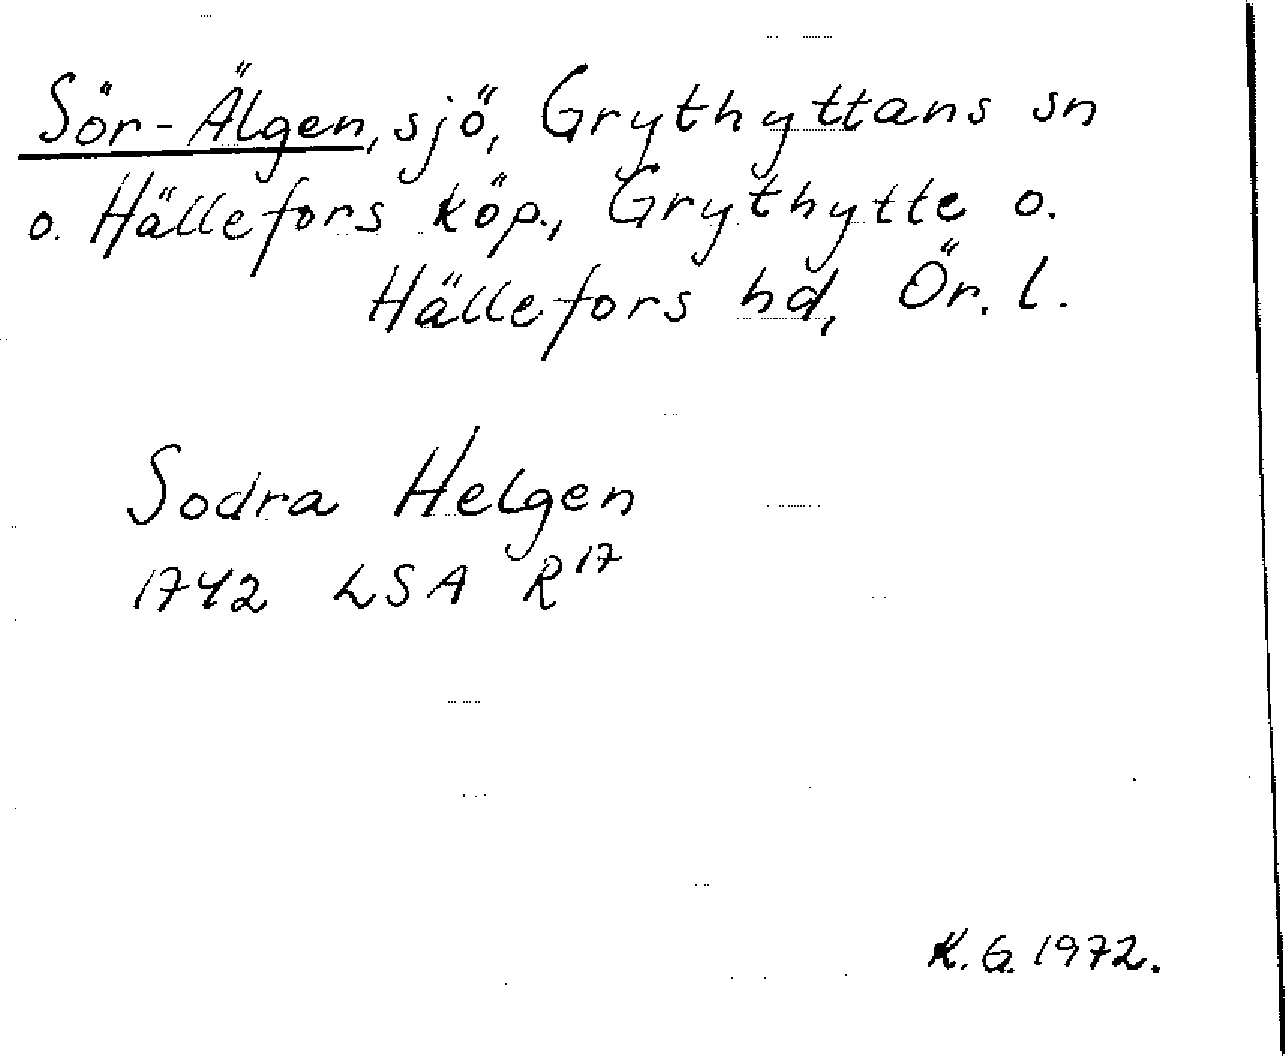 Sör-Älgen, sjö, Grythyttans sn
o. Hällefors köp., Grythytte o.
Hällefors hd, Ör. l.
Sodra Helgen
1742 LSA R17
K.G. 1972.